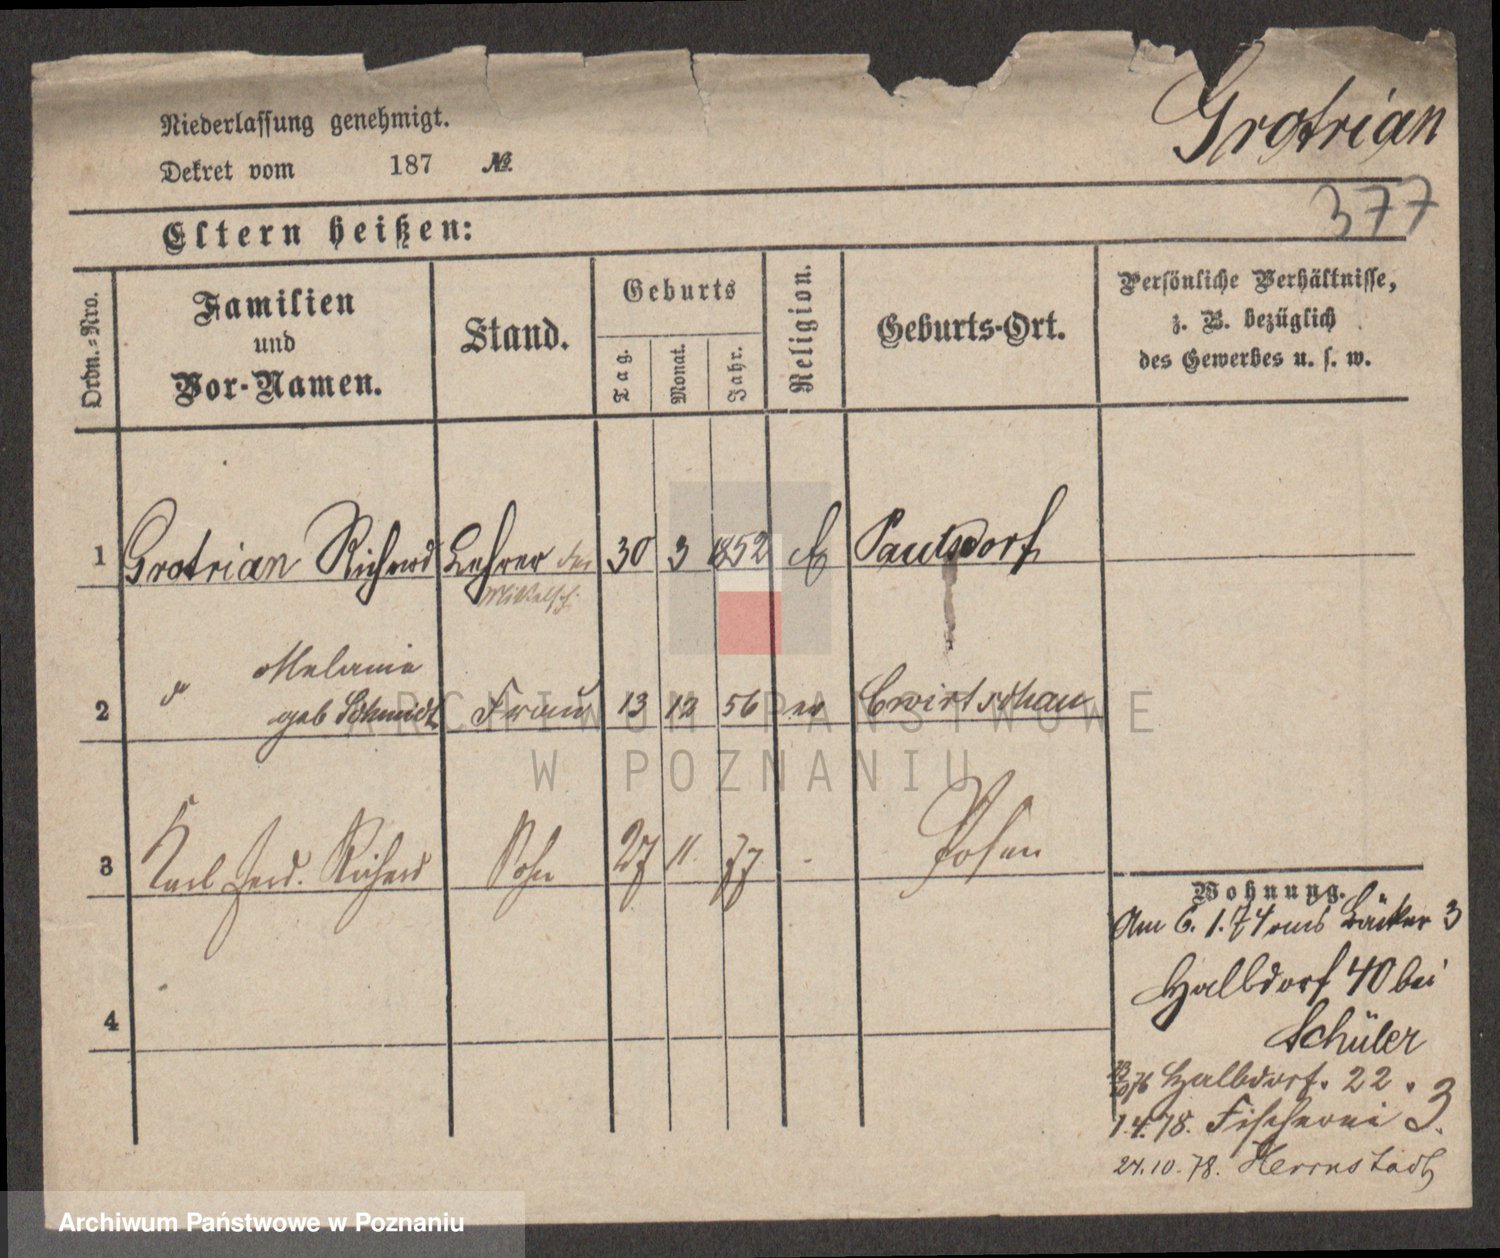 Grotrian
Niederlassung genehmigt.
Dekret vom 187 №.
377
Eltern heißen:
Ordn.-Nro.
Familien
und
Vor-Namen.
Stand.
Geburts
Tag.
Monat.
Jahr.
Religion.
Geburts-Ort.
Persönliche Verhältnisse,
z. B. bezüglich
des Gewerbes u. s. w.
1 Grotrian Richard Lehrer 30 3 1852 Paulsdorf
Mittelsch.
" Melanie
2 geb Schmidt Frau 13 12 56 ev Cwirtschau
3 Karl Ferd. Richard Sohn 27 11. 77. - Posen
Wohnung.
Am 6. 1. 74 aus Bäcker 3
Halbdorf 40 bei
Schüler
4
76 Halbdorf. 22.
1.4.78. Fischerei 3.
24.10.78. Herrnstadt
ARCHIWUM PAŃSTWOWE
W POZNANIU
Archiwum Państwowe w Poznaniu